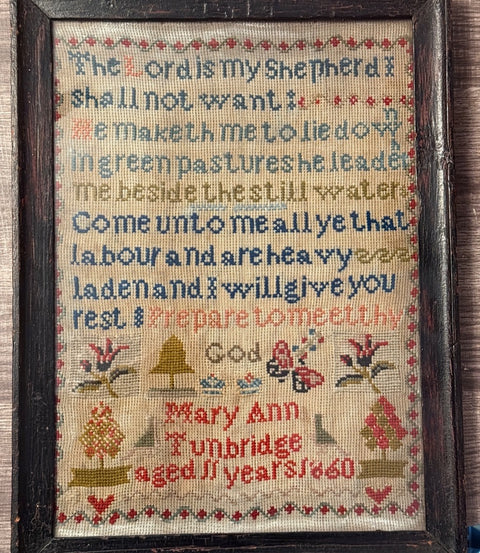 The Lord is my shepherd I
shall not want :
He maketh me to lie down
in green pastures he leadeth
me beside the still waters
Come unto me all ye that
labour and are heavy
laden and I will give you
rest : Prepare to meet thy
God
Mary Ann
Tunbridge
aged 11 years 1860